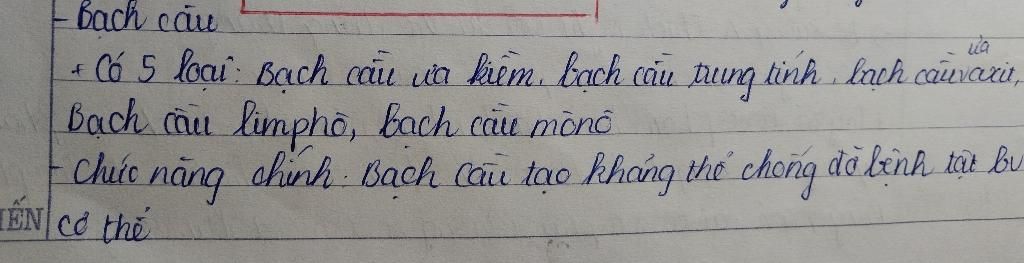 - Bạch cầu
+ Có 5 loại: Bạch cầu ưa kiềm, bạch cầu trung tính, bạch cầu ưa axit,
Bạch cầu limphô, bạch cầu mônô
- Chức năng chính: Bạch cầu tạo kháng thể chống đỡ bệnh tật
IẾN cơ thể